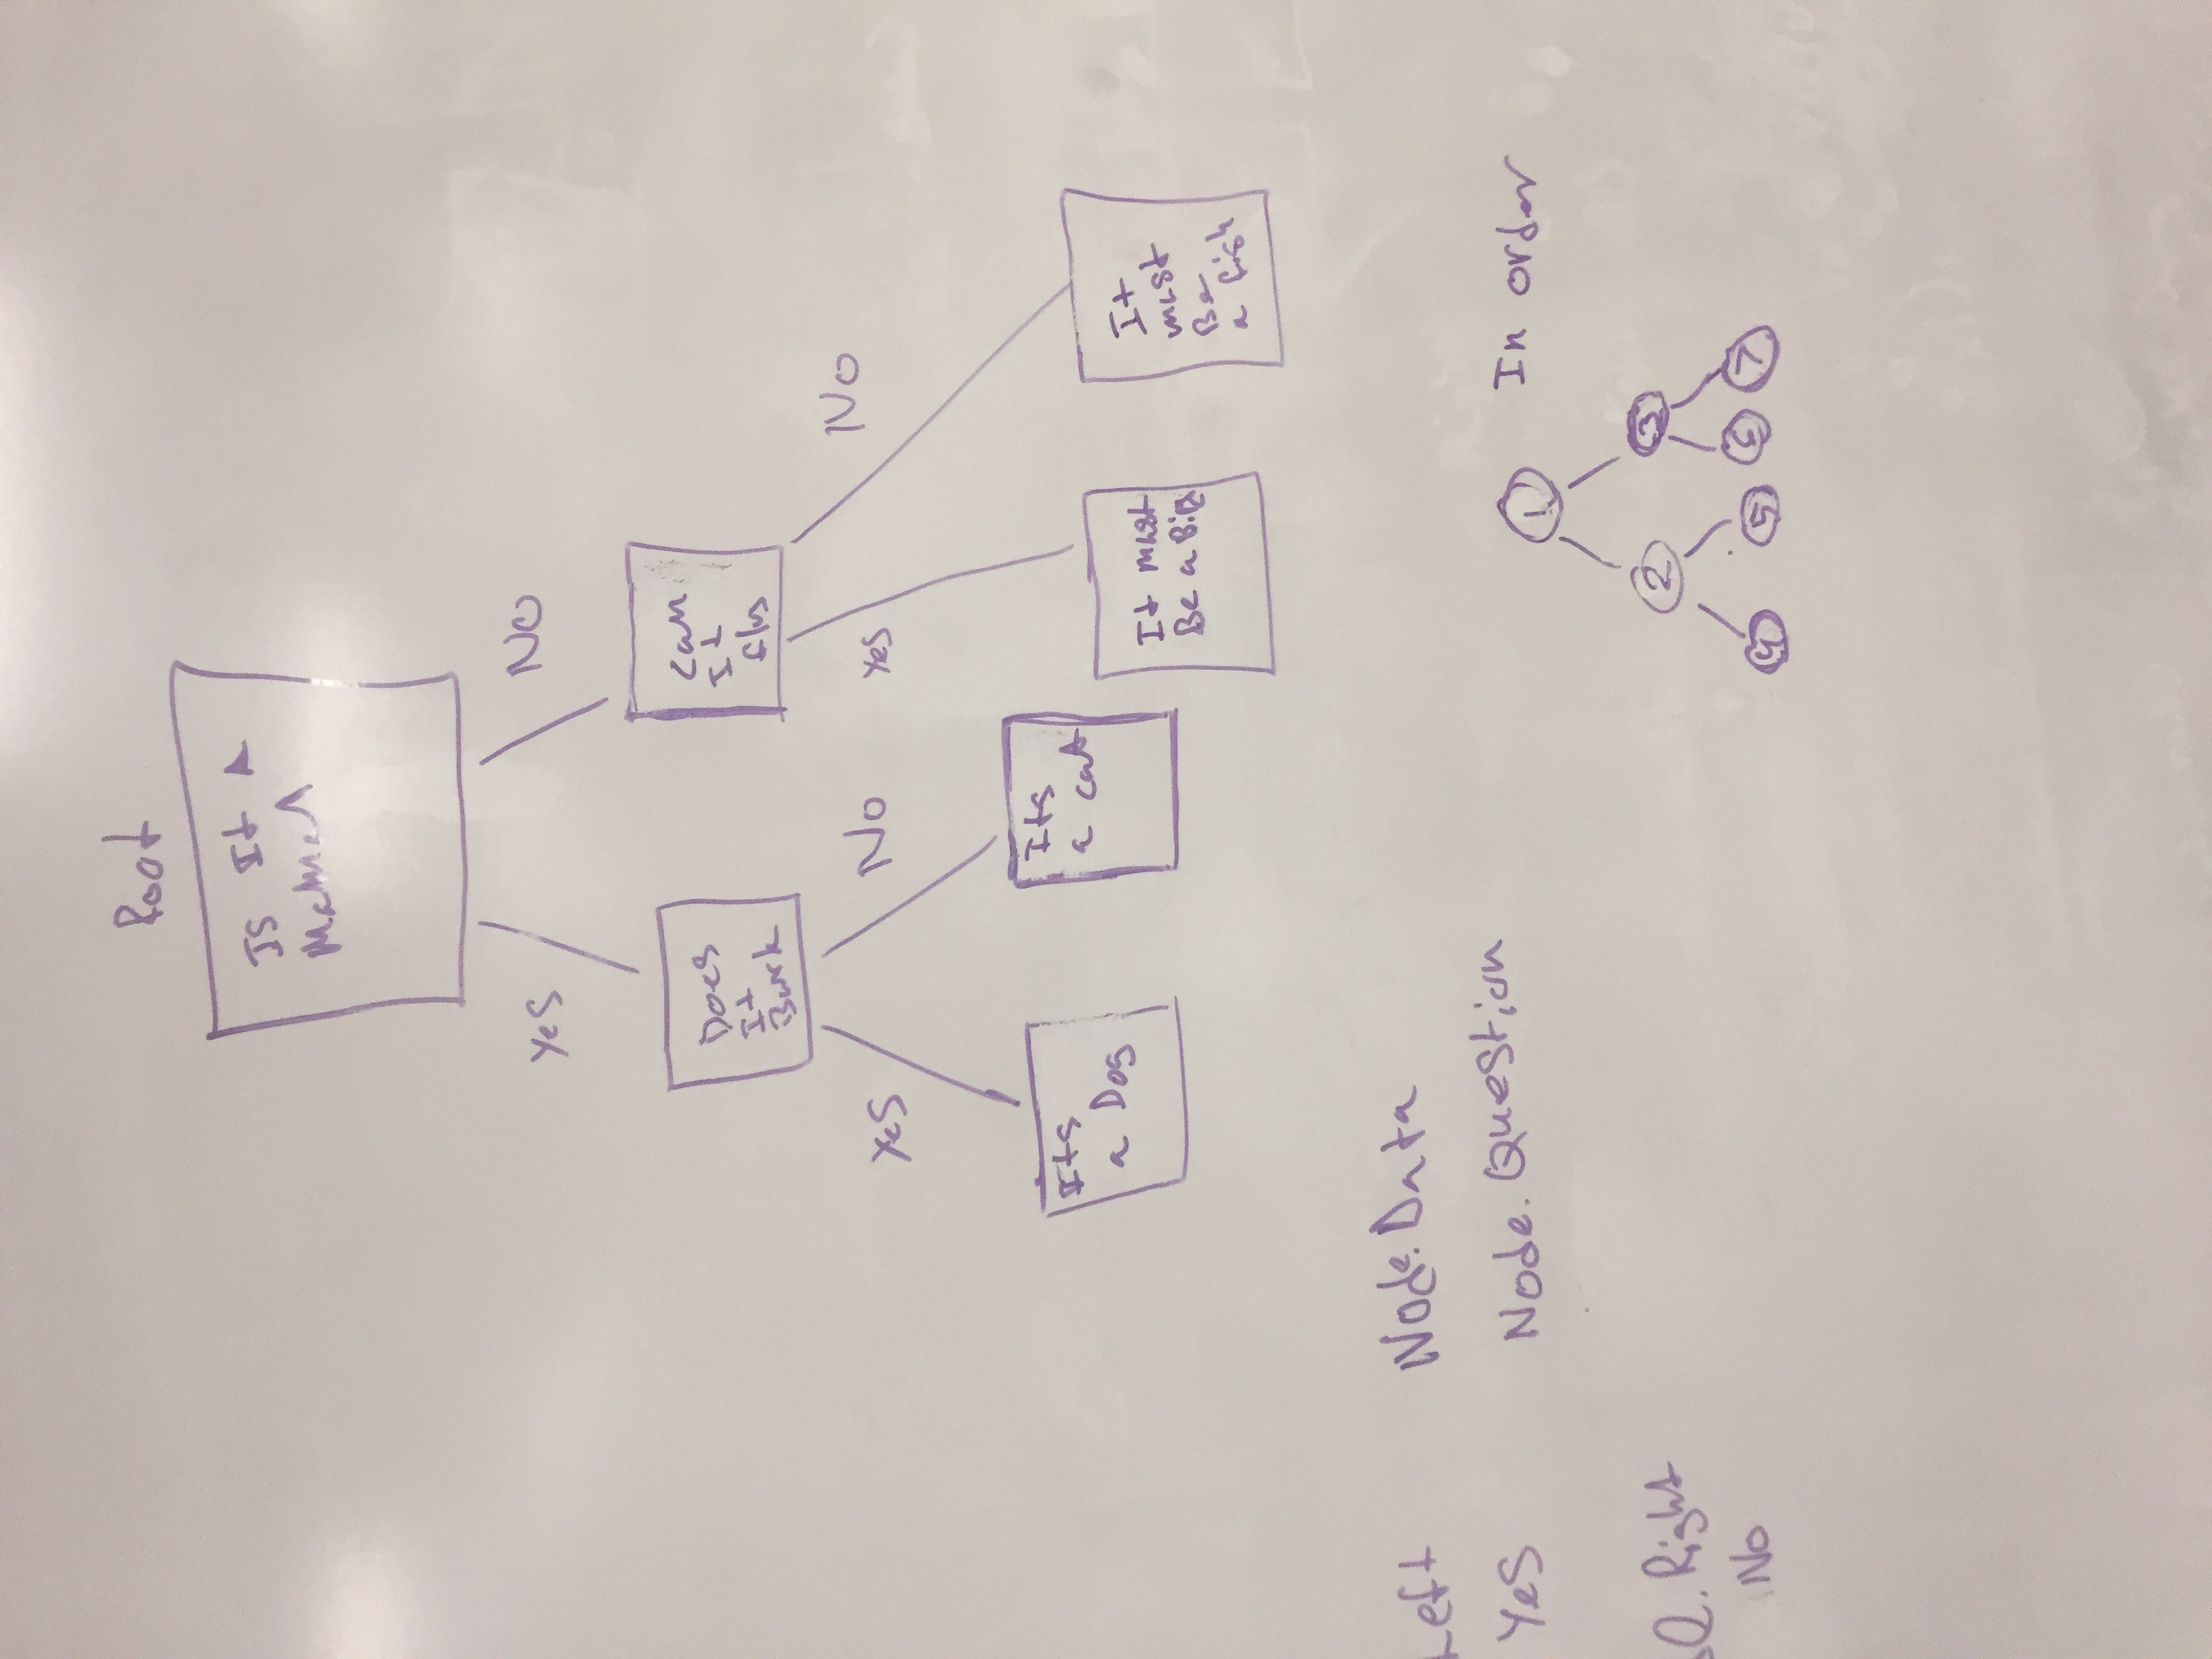 Root
Is It A
Mamal
Yes
No
Does
It
Bark
Can
It
fly
Yes
No
Yes
No
Its
a Dog
Its
a cat
It must
Be a Bird
It
must
Be
a fish
Left
Node.Data
Yes
Node.Question
Right
No
In order
1
2
3
4
5
6
7